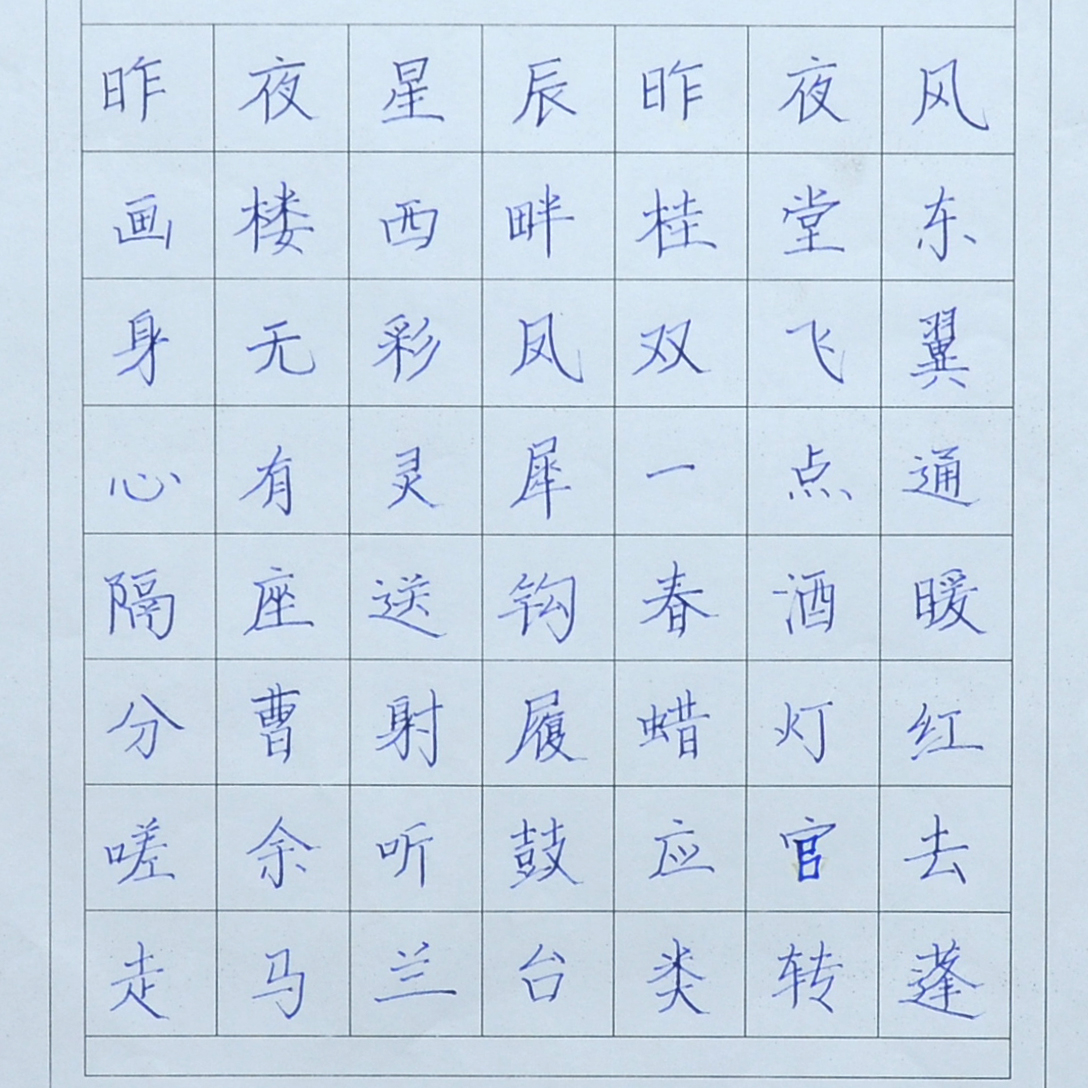 昨夜星辰昨夜风
画楼西畔桂堂东
身无彩凤双飞翼
心有灵犀一点通
隔座送钩春酒暖
分曹射履蜡灯红
嗟余听鼓应官去
走马兰台类转蓬